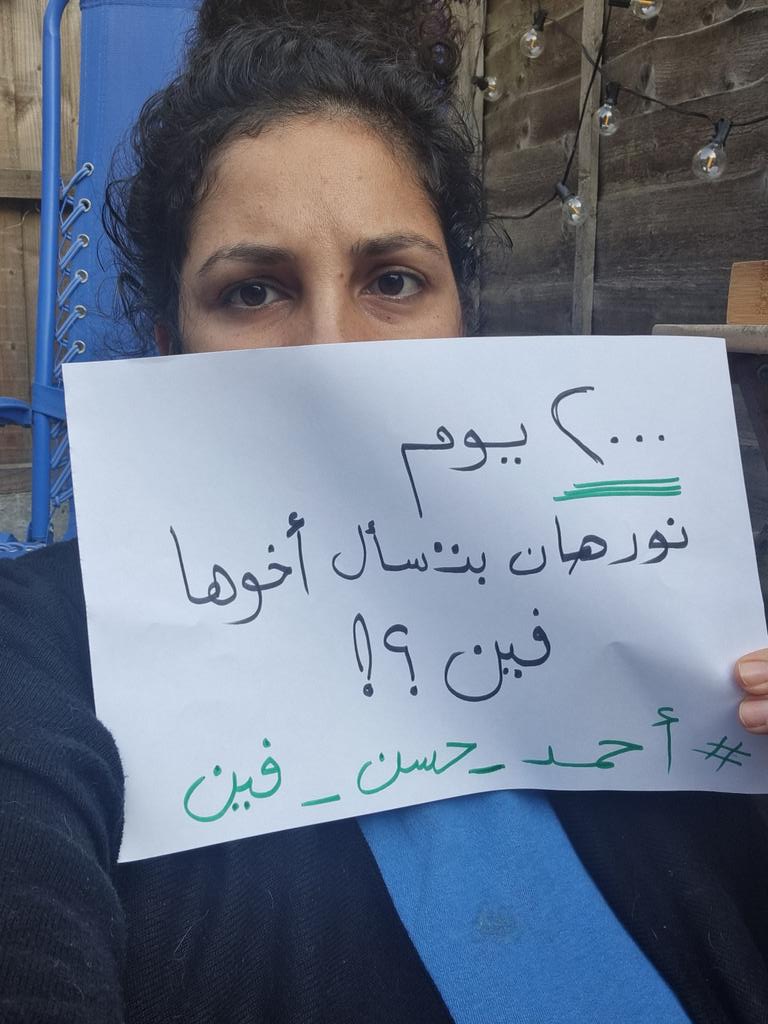 ٢٠٠٠ يوم
نورهان بتسأل أخوها
فين ؟!
#أحمد_حسن_فين